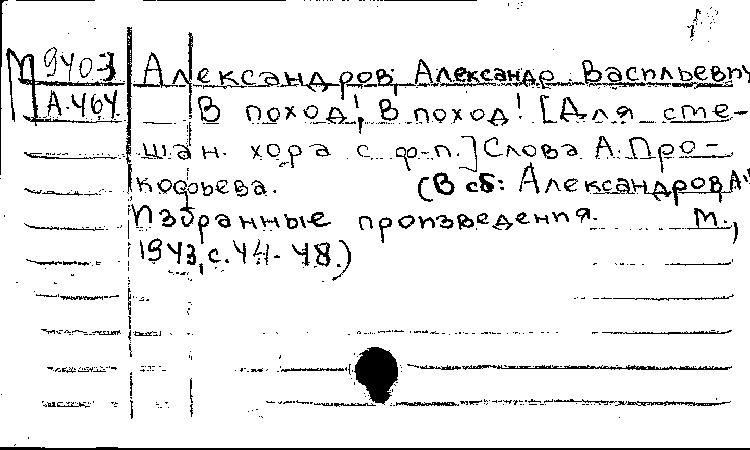 М 9403 Александров, Александр Васильевич
А-464 В поход! В поход! [Для сме-
шан. хора с ф-п.] Слова А. Про-
кофьева. (В сб: Александров А.
Избранные произведения. М.,
1943, с. 44-48.)